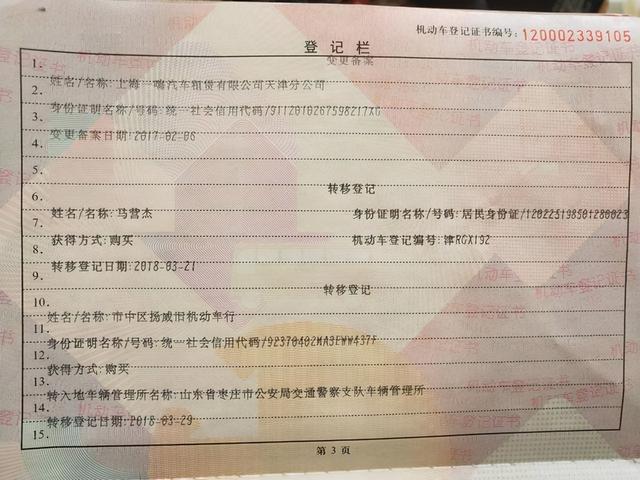 机动车登记证书编号:120002339105
登记栏
1. 变更备案
2. 姓名/名称:上海一嗨汽车租赁有限公司天津分公司
3. 身份证明名称/号码:统一社会信用代码/91120102675982177XG
4. 变更备案日期:2017-02-06
5.
6. 转移登记
7. 姓名/名称:马营杰 身份证明名称/号码:居民身份证/120225198501280023
8. 获得方式:购买 机动车登记编号:津RGX192
9. 转移登记日期:2018-03-21
10. 转移登记
11. 姓名/名称:市中区扬威旧机动车行
12. 身份证明名称/号码:统一社会信用代码/92370402MA3EWW437F
13. 获得方式:购买
14. 转入地车辆管理所名称:山东省枣庄市公安局交通警察支队车辆管理所
15. 转移登记日期:2018-03-29
第3页